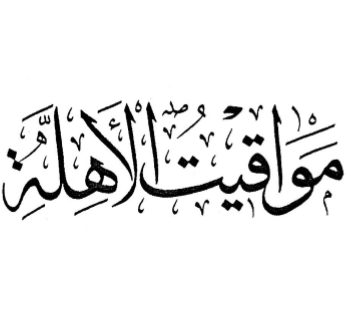 مَوَاقِيتُ الْأَهِلَّةِ